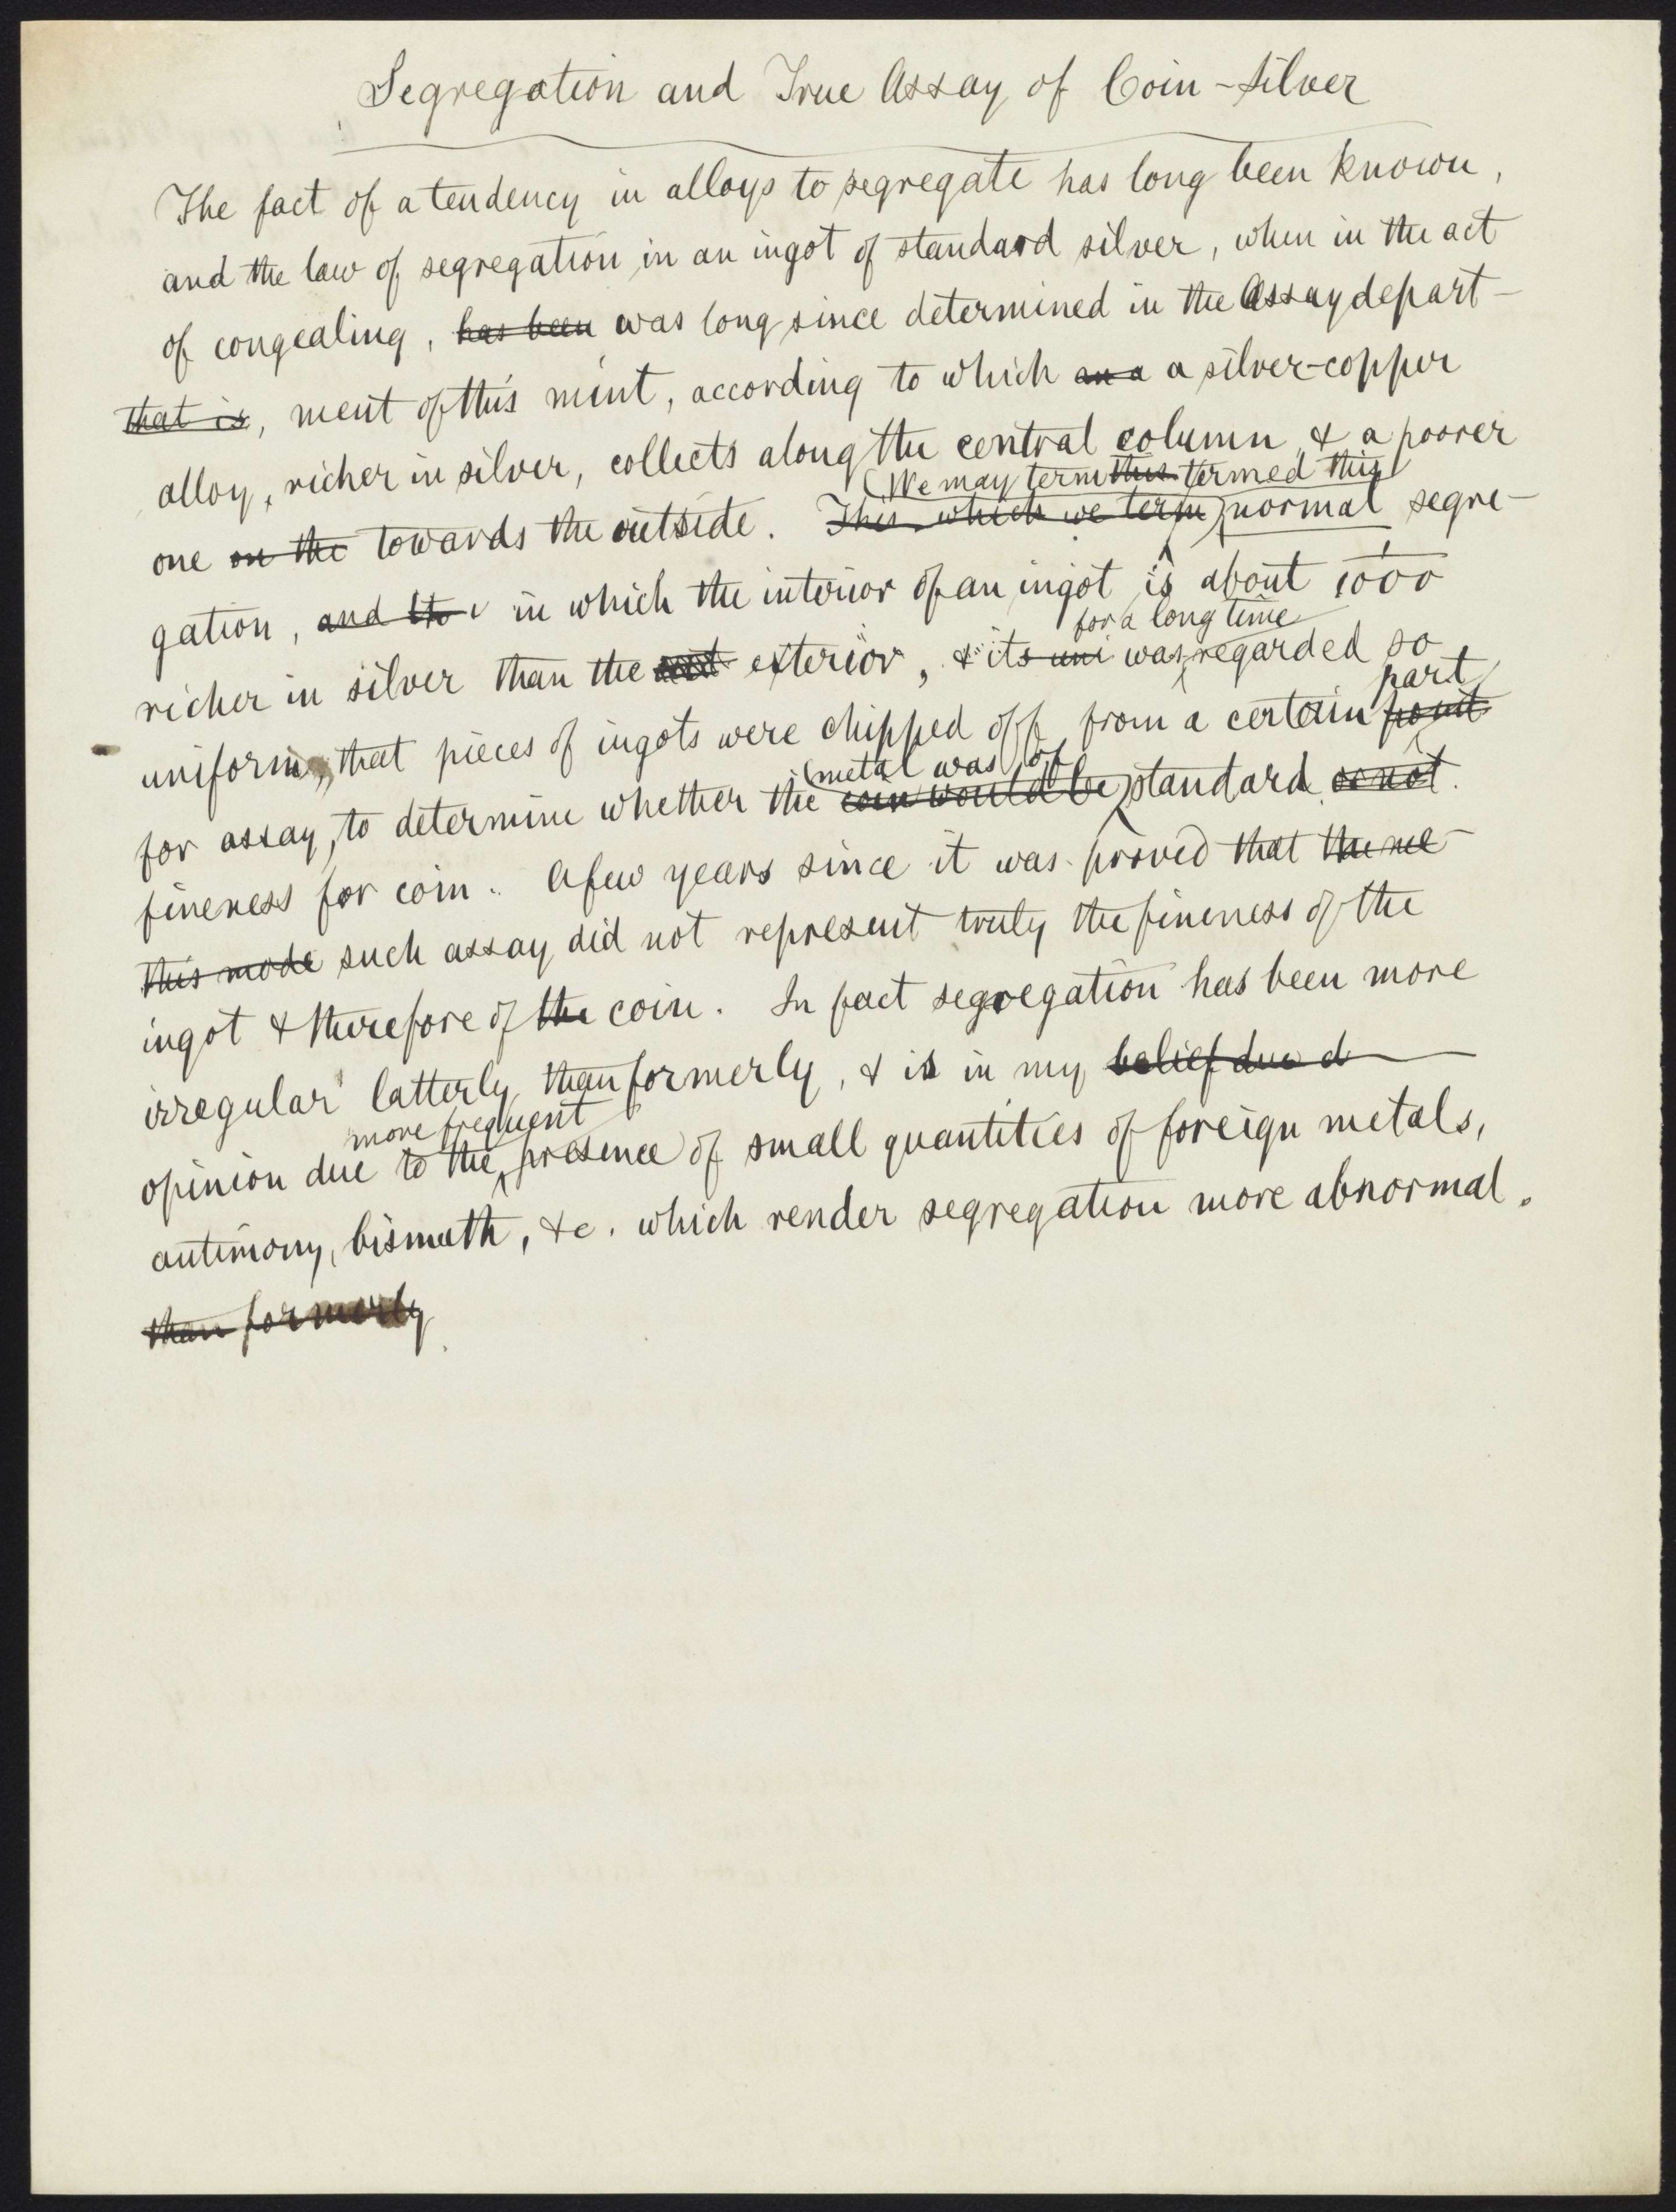 Segregation and True Assay of Coin-Silver
The fact of a tendency in alloys to segregate has long been known,
and the law of segregation in an ingot of standard silver, when in the act
of congealing, has been was long since determined in the Assay depart-
that is, ment of this mint, according to which an a a silver-copper
alloy, richer in silver, collects along the central column, & a poorer
We may term this termed this
one on the towards the outside. This which we term normal segre-
gation, and its in which the interior of an ingot is about 1/1000
for a long time
richer in silver than the exterior, & its uni was regarded so
part
uniform, that pieces of ingots were chipped off from a certain point
metal was of
for assay, to determine whether the coin would be standard or not.
fineness for coin. A few years since it was proved that the
this mode such assay did not represent truly the fineness of the
ingot & therefore of the coin. In fact segregation has been more
irregular latterly than formerly, & is in my belief due d
more frequent
opinion due to the presence of small quantities of foreign metals,
antimony, bismuth, &c. which render segregation more abnormal.
than formerly